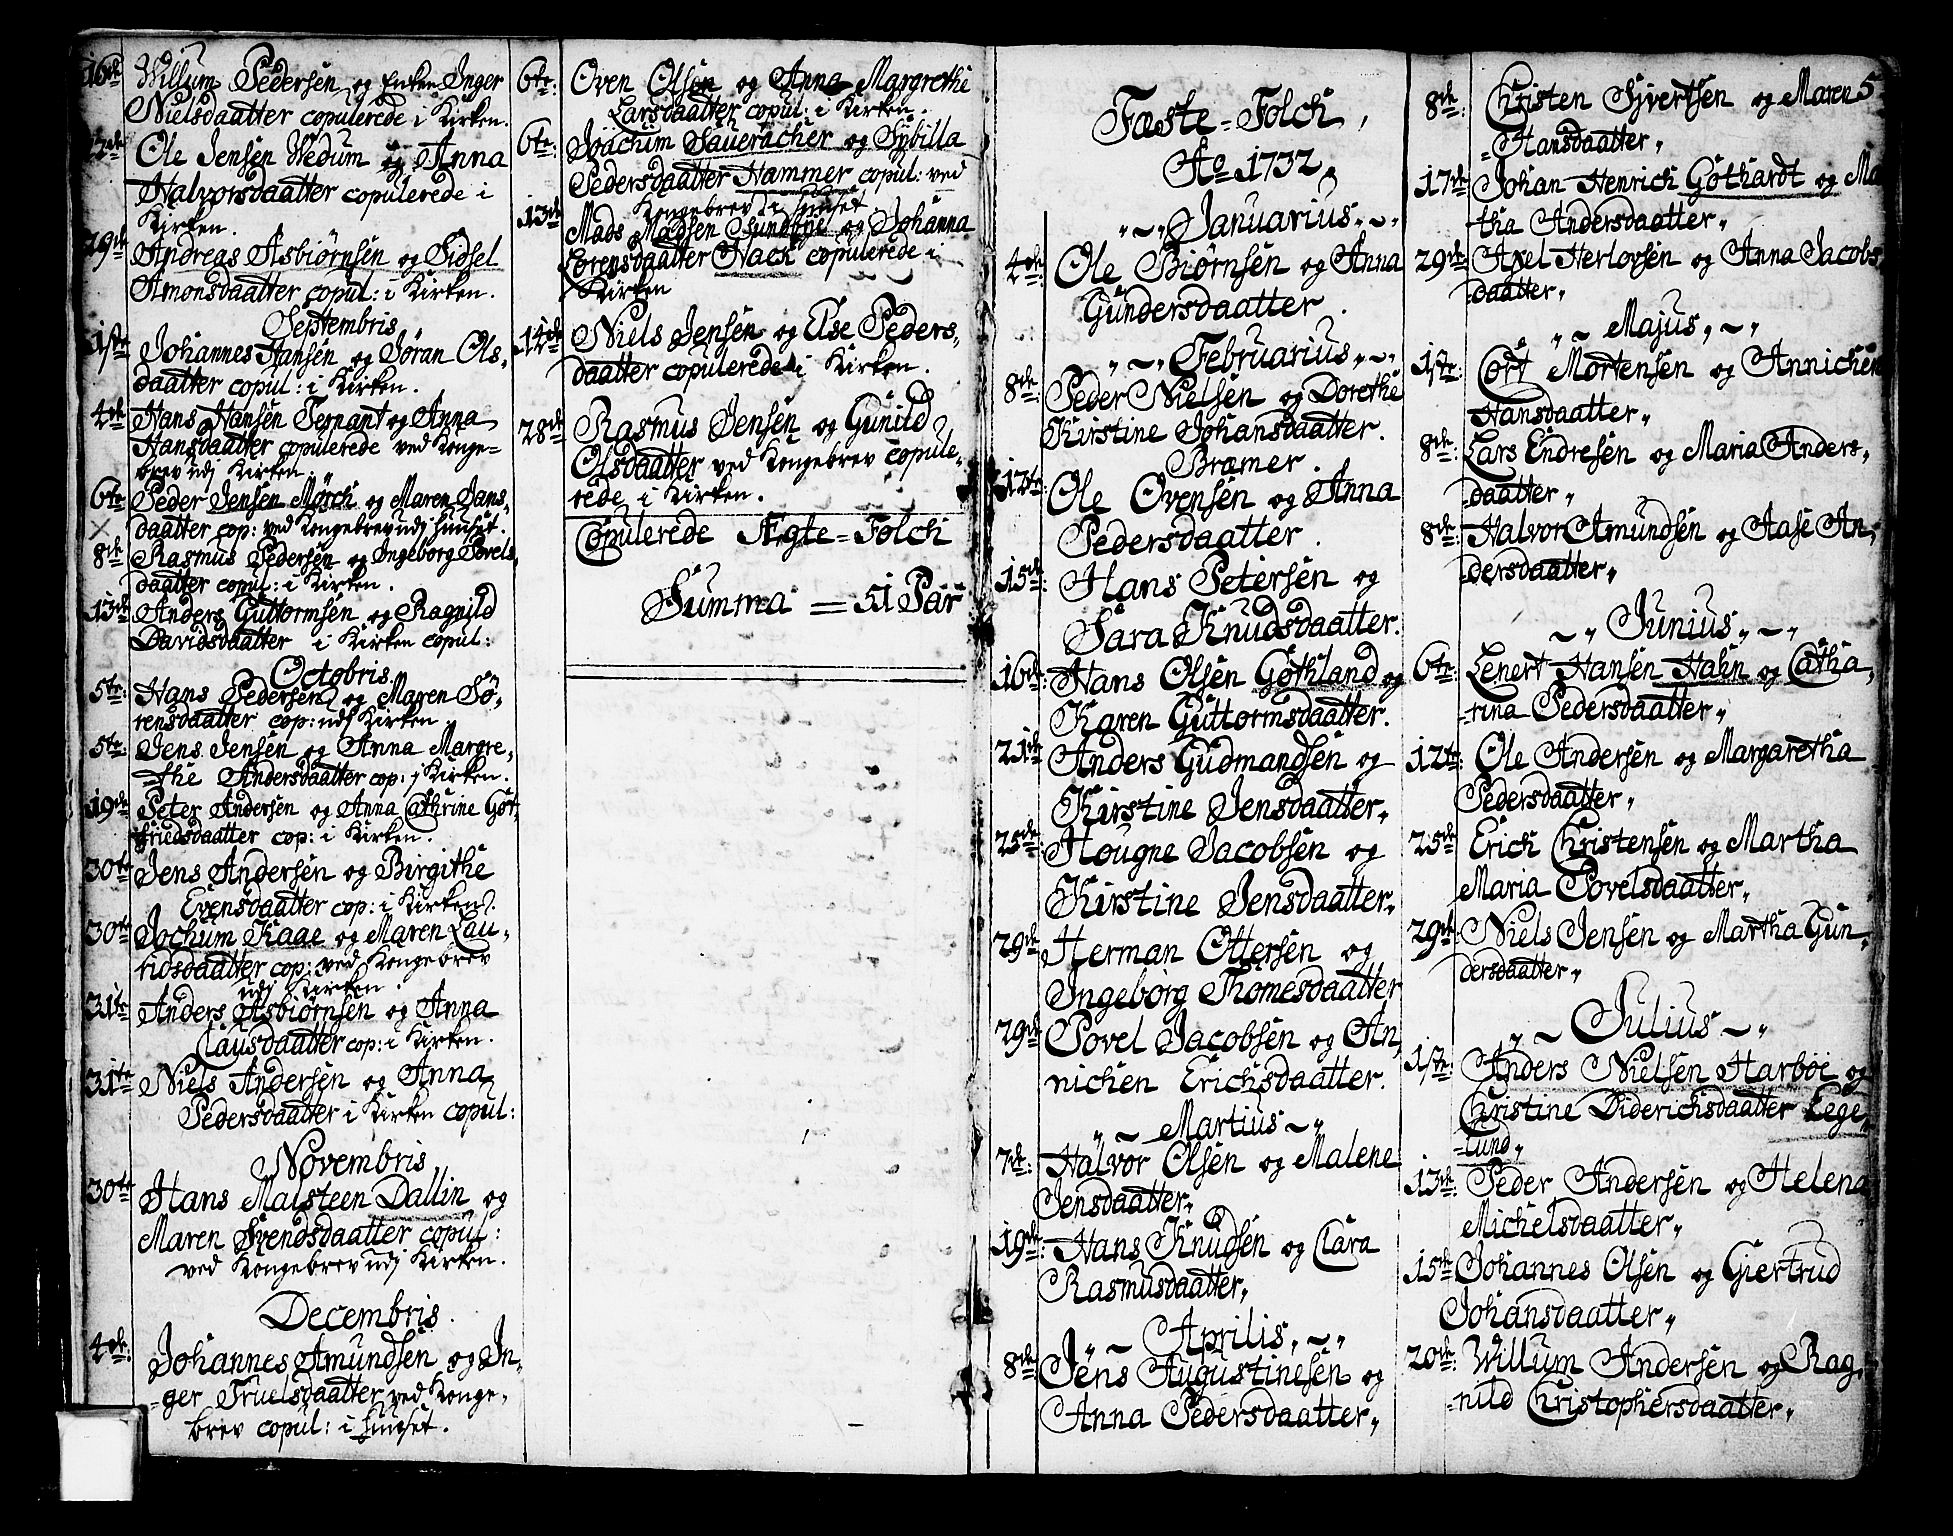 16de Willum Pedersen og Enken Inger
Nielsdaatter copulerede i Kirken.
Ole Jensen Wedum og Anna
Halvorsdaatter copulerede i
Kirken.
29de Andreas Asbiørnsen og Sidsel
Amonsdaatter copul: i Kirken.
Septembris
1ste Johannes Hansen og Jøran Ols-
daatter copul: i Kirken.
4de Hans Hansen Ternant og Anna
Hansdaatter copulerede ved Konge-
brev udj Kirken.
6te Peder Jensen Mørch og Maren Jans-
daatter cop: ved Kongebrev udj Huuset.
8de Rasmus Pedersen og Ingeborg Povels
daatter copul: i Kirken.
13de Anders Guttormsen og Ragnild
Davidsdaatter i Kirken copul:
Octobris
5te: Hans Pedersen og Maren Sø-
rensdaatter cop: udj Kirken
5te: Jens Jensen og Anna Margre-
the Andersdaatter cop: j Kirken.
19de Peter Andersen og Anna Cathrine Got-
friedsdaatter cop: i Kirken.
30te Jens Andersen og Birgithe
Evensdaatter cop: i Kirken.
30te Jochum Kaae og Maren Lau-
ridsdaatter cop: ved Kongebrev
udj Kirken.
31te Anders Asbiørnsen og Anna
Clausdaatter cop: i Kirken.
31te Niels Andersen og Anna
Pedersdaatter i Kirken copul:
Novembris
30te Hans Maisteen Dallin og
Maren Svendsdaatter copul:
ved Kongebrev udj Kirken.
Decembris.
4de: Johannes Amundsen og In-
ger Truelsdaatter ved Konge-
brev copul: i Huuset.
6te: Oven Olsen og Anna Margrethe
Larsdaatter copul: i Kirken.
6te: Joachim Saueracher og Sybilla
Pedersdaatter Hammer copul: ved
Kongebrev i Huuset.
13de Mads Madsen Sundbye og Johanna
Lorensdaatter Hack copulerede i
Kirken
Niels Jensen og Else Peders-
daatter copulerede i Kirken.
28de Rasmus Jensen og Gunild
Olsdaatter ved Kongebrev copule-
rede i Kirken.
Copulerede Ægte-Folch
Summa = 51 Par
Fæste-Folch,
Ao 1732,
Januarius
4de: Ole Biørnsen og Anna
Gundersdaatter.
Februarius
8de: Peder Nielsen og Dorethe
Kirstine Johansdaatter.
Bramer.
12te: Ole Ovensen og Anna
Pedersdaatter.
15de: Hans Petersen og
Sara Knudsdaatter.
16de: Hans Olsen Gothland og
Karen Guttormsdaatter.
21de Anders Gudmandsen og
Kirstine Jensdaatter
25de: Hougne Jacobsen og
Kirstine Jensdaatter
29de Herman Ottersen og
Ingeborg Thomesdaatter
29de Povel Jacobsen og An-
nichen Erichsdaatter.
Martius
7de: Halvor Olsen og Malene
Jensdaatter
19de: Hans Knudsen og Clara
Rasmusdaatter,
Aprilis,
8de: Jens Augustinesen og
Anna Pedersdaatter
5
8de: Christen Sjvertsen og Maren
Hansdaatter
17de Johan Henrich Gothardt og Ma
tha Andersdaatter
29de Axel Herlovsen og Anna Jacobs
daatter
Majus,
1ste: Cort Mortensen og Annichen
Hansdaatter
8de: Lars Endresen og Maria Anders-
daatter
8de: Halvor Amundsen og Aase An-
dersdaatter
Junius
6te: Lenert Hansen Hahn og Catha-
rina Pedersdaatter
12te: Ole Andersen og Margaretha
Pedersdaatter
25de Erich Christensen og Martha
Maria Povelsdaatter
29de: Niels Jensen og Martha Gun-
dersdaatter
Julius
1ste: Anders Nielsen Harboe og
Christine Diderichsdaatter Lege-
lund
13de: Peder Andersen og Helena
Michelsdaatter
15de: Johannes Olsen og Giertrud
Johansdaatter
20de: Willum Andersen og Rag-
nild Christophersdaatter